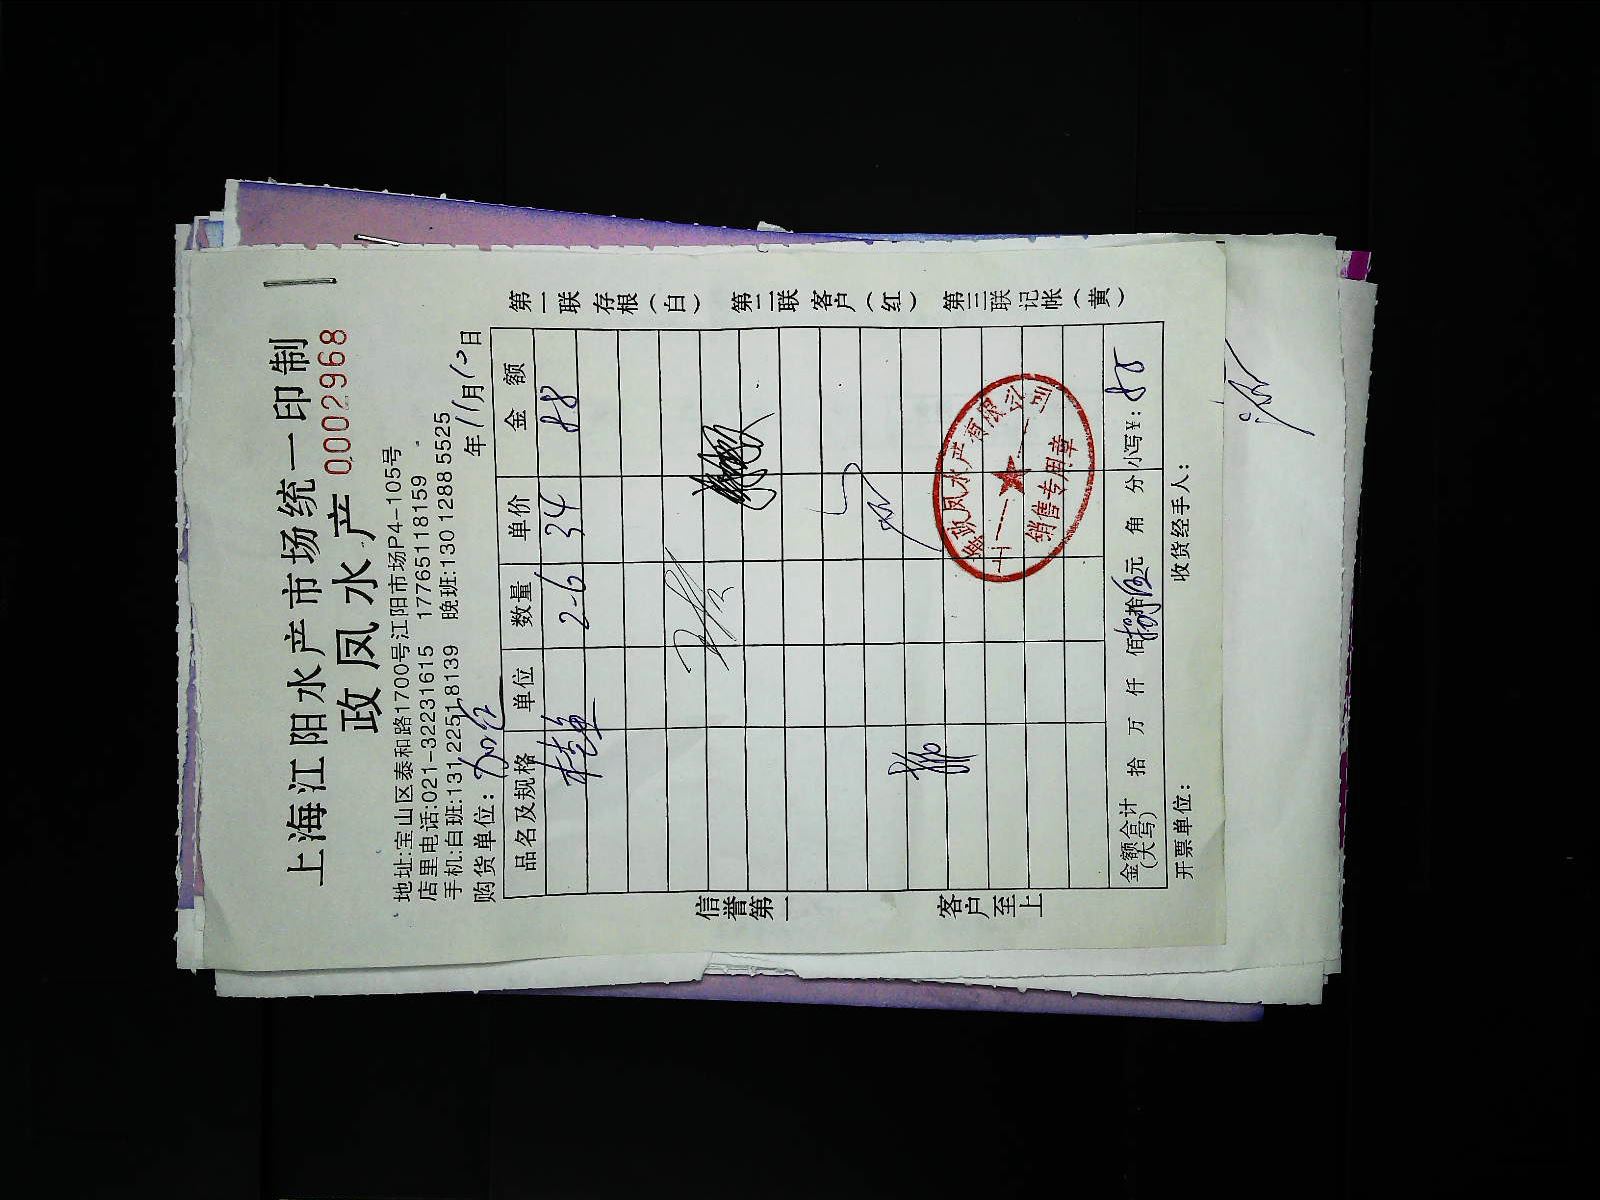 上海江阳水产市场统一印制
政凤水产 0002968
地址:宝山区泰和路1700号江阳市场P4-105号
店里电话:021-32231615 17765118159
手机:白班:131 2251 8139 晚班:130 1288 5525
购货单位: 年11月10日
品名及规格 单位 数量 单价 金额
桂鱼 2-6 34 88
金额合计(大写) 拾 万 仟 佰 拾 元 角 分 小写¥:
开票单位: 收货经手人:
信誉第一 客户至上
第一联存根(白) 第二联客户(红) 第三联记帐(黄)
上海政凤水产有限公司
销售专用章